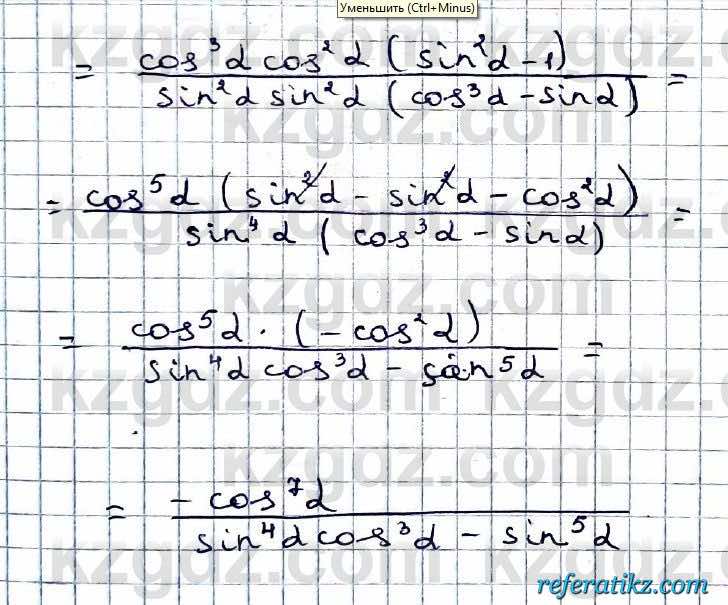 Уменьшить (Ctrl+Minus)
= cos³α cos²α (sin²α - 1) / sin²α sin²α (cos³α - sinα) =
= cos⁵α (sin²α - sin²α - cos²α) / sin⁴α (cos³α - sinα) =
= cos⁵α · (- cos²α) / sin⁴α cos³α - sin⁵α =
= - cos⁷α / sin⁴α cos³α - sin⁵α
kzgdz.com
kzgdz.com
kzgdz.com
kzgdz.com
kzgdz.com
referatikz.com